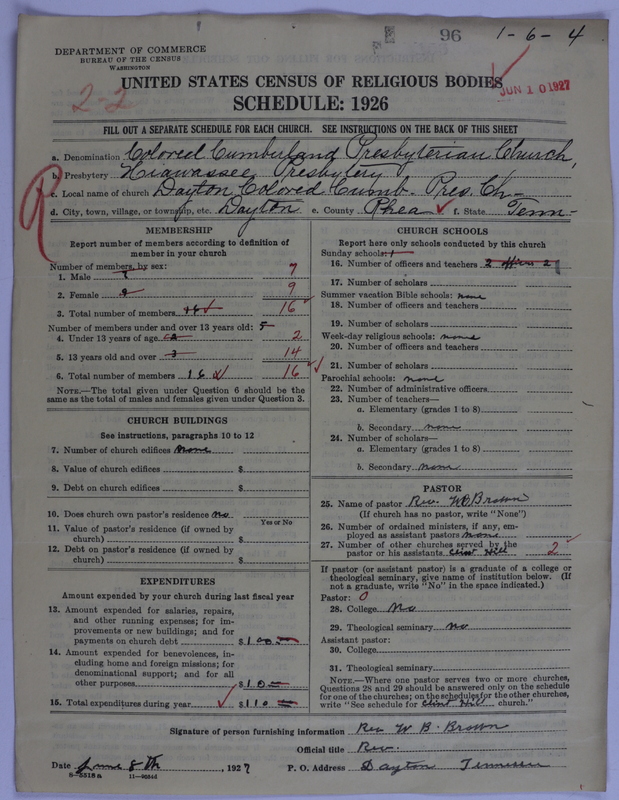 96 1-6-4
DEPARTMENT OF COMMERCE
BUREAU OF THE CENSUS
WASHINGTON
2-2
JUN 10 1927
UNITED STATES CENSUS OF RELIGIOUS BODIES
SCHEDULE: 1926
FILL OUT A SEPARATE SCHEDULE FOR EACH CHURCH. SEE INSTRUCTIONS ON THE BACK OF THIS SHEET
R
a. Denomination Colored Cumberland Presbyterian Church,
b. Presbytery Hiawassee Presbytery
c. Local name of church Dayton Colored Cumb. Pres. Ch-
d. City, town, village, or township, etc. Dayton e. County Rhea f. State Tenn-
MEMBERSHIP
Report number of members according to definition of
member in your church
Number of members, by sex:
1. Male 7 7
2. Female 9 9
3. Total number of members 16 16
Number of members under and over 13 years old: 5-
4. Under 13 years of age 2
5. 13 years old and over 3 14
6. Total number of members 16 16
NOTE.—The total given under Question 6 should be
same as the total of males and females given under Question 3.
CHURCH BUILDINGS
See instructions, paragraphs 10 to 12
7. Number of church edifices none
8. Value of church edifices $
9. Debt on church edifices $
10. Does church own pastor's residence no
Yes or No
11. Value of pastor's residence (if owned by
church) $
12. Debt on pastor's residence (if owned by
church) $
EXPENDITURES
Amount expended by your church during last fiscal year
13. Amount expended for salaries, repairs,
and other running expenses; for im-
provements or new buildings; and for
payments on church debt $100
14. Amount expended for benevolences, in-
cluding home and foreign missions; for
denominational support; and for all
other purposes $10
15. Total expenditures during year $110
CHURCH SCHOOLS
Report here only schools conducted by this church
Sunday schools: 1
16. Number of officers and teachers 2 officers 2
17. Number of scholars
Summer vacation Bible schools: none
18. Number of officers and teachers
19. Number of scholars
Week-day religious schools: none
20. Number of officers and teachers
21. Number of scholars
Parochial schools: none
22. Number of administrative officers
23. Number of teachers—
a. Elementary (grades 1 to 8)
b. Secondary none
24. Number of scholars—
a. Elementary (grades 1 to 8)
b. Secondary none
PASTOR
25. Name of pastor Rev. W B Brown
(If church has no pastor, write "None")
26. Number of ordained ministers, if any, em-
ployed as assistant pastors none
27. Number of other churches served by the
pastor or his assistants Clint Hill 2
If pastor (or assistant pastor) is a graduate of a college or
theological seminary, give name of institution below. (If
not a graduate, write "No" in the space indicated.)
Pastor: 0
28. College No
29. Theological seminary no
Assistant pastor:
30. College
31. Theological seminary
NOTE.—Where one pastor serves two or more churches,
Questions 28 and 29 should be answered only on the schedule
for one of the churches; on the schedules for the other churches,
write "See schedule for Clint Hill church."
Signature of person furnishing information Rev W B Brown
Official title Rev.
Date June 8th, 1927 P. O. Address Dayton Tennessee
8-5518 a 11-9664d